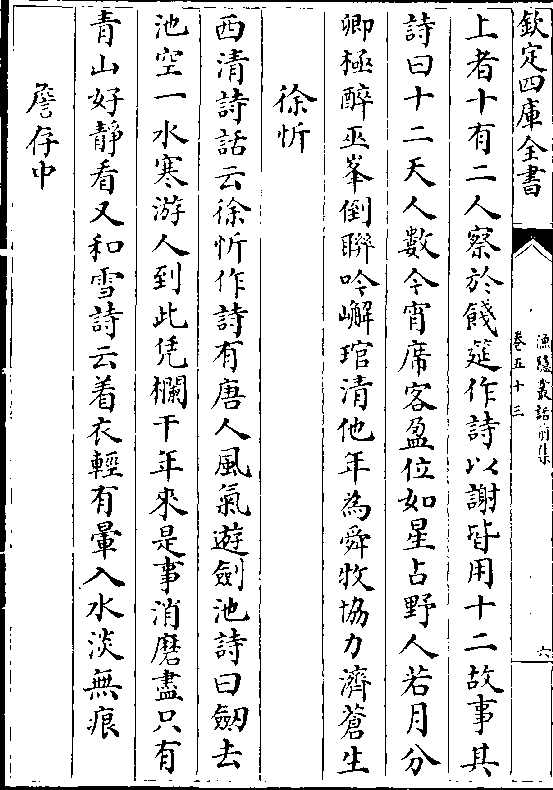 欽定四庫全書
漁隱叢話前集
卷五十三
六
上者十有二人察於餞筵作詩以謝皆用十二故事其
詩曰十二天人數今宵席客盈位如星占野人若月分
卿極醉巫峯倒聯吟嶰琯清他年為舜牧協力濟蒼生
徐忻
西清詩話云徐忻作詩有唐人風氣遊劍池詩曰劒去
池空一水寒游人到此凭欄干年來是事消磨盡只有
青山好靜看又和雪詩云着衣輕有暈入水淡無痕
詹存中